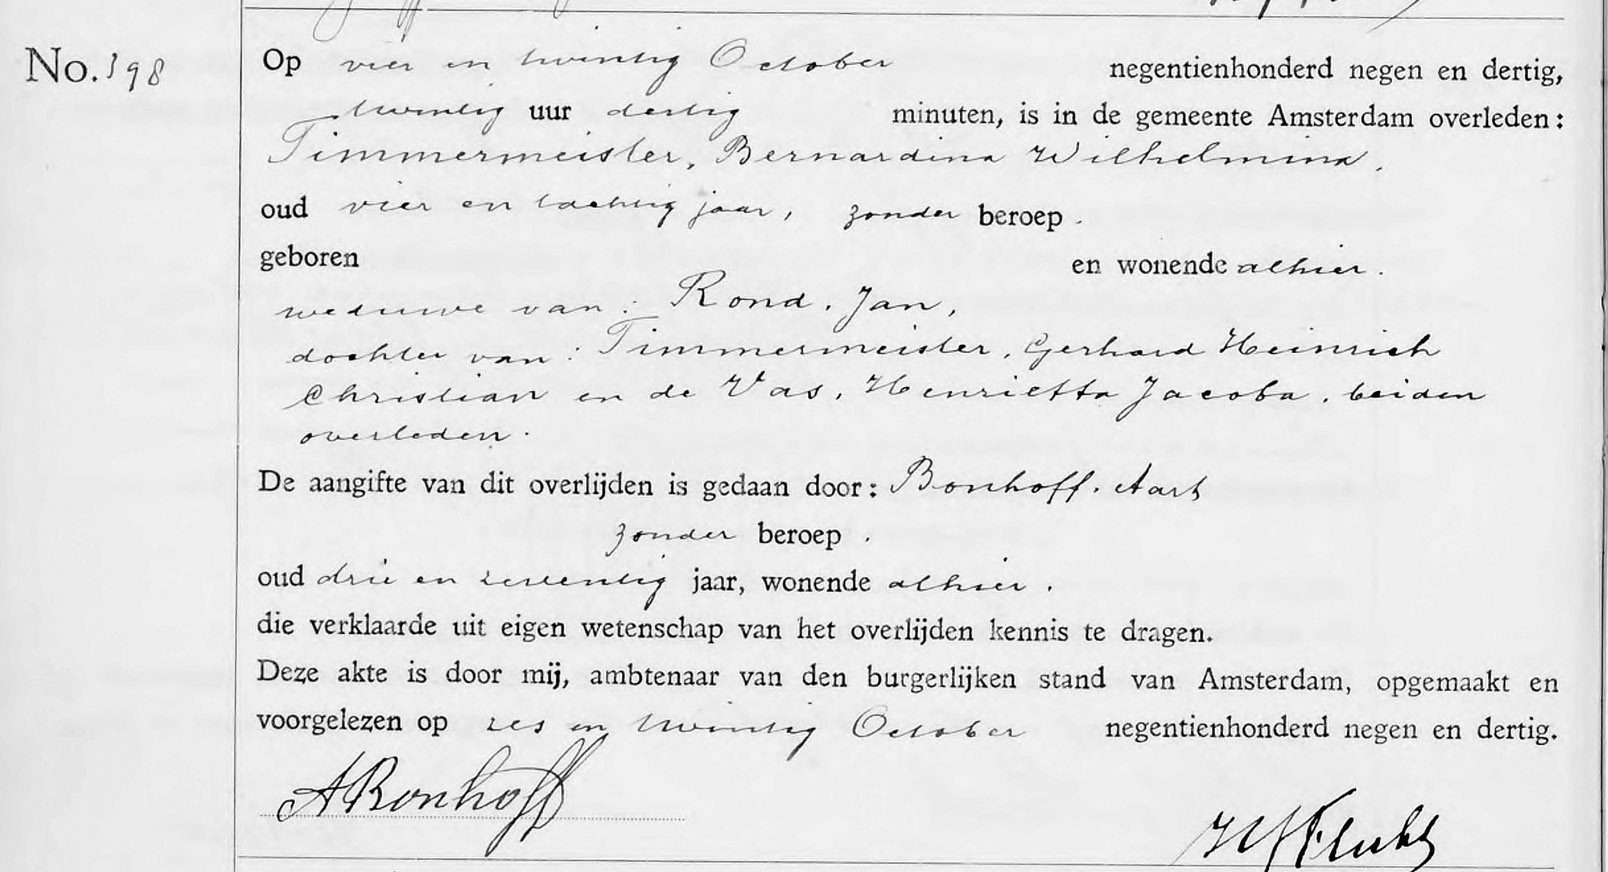 No. 398
Op vier en twintig October negentienhonderd negen en dertig,
twintig uur dertig minuten, is in de gemeente Amsterdam overleden:
Timmermeister, Bernardina Wilhelmina,
oud vier en tachtig jaar, zonder beroep.
geboren en wonende alhier.
weduwe van: Rond, Jan,
dochter van: Timmermeister, Gerhard Heinrich
Christian en de Vas, Henrietta Jacoba, beiden
overleden.
De aangifte van dit overlijden is gedaan door: Bonhoff, Aart
zonder beroep.
oud drie en zeventig jaar, wonende alhier.
die verklaarde uit eigen wetenschap van het overlijden kennis te dragen.
Deze akte is door mij, ambtenaar van den burgerlijken stand van Amsterdam, opgemaakt en
voorgelezen op zes en twintig October negentienhonderd negen en dertig.
ABonhoff